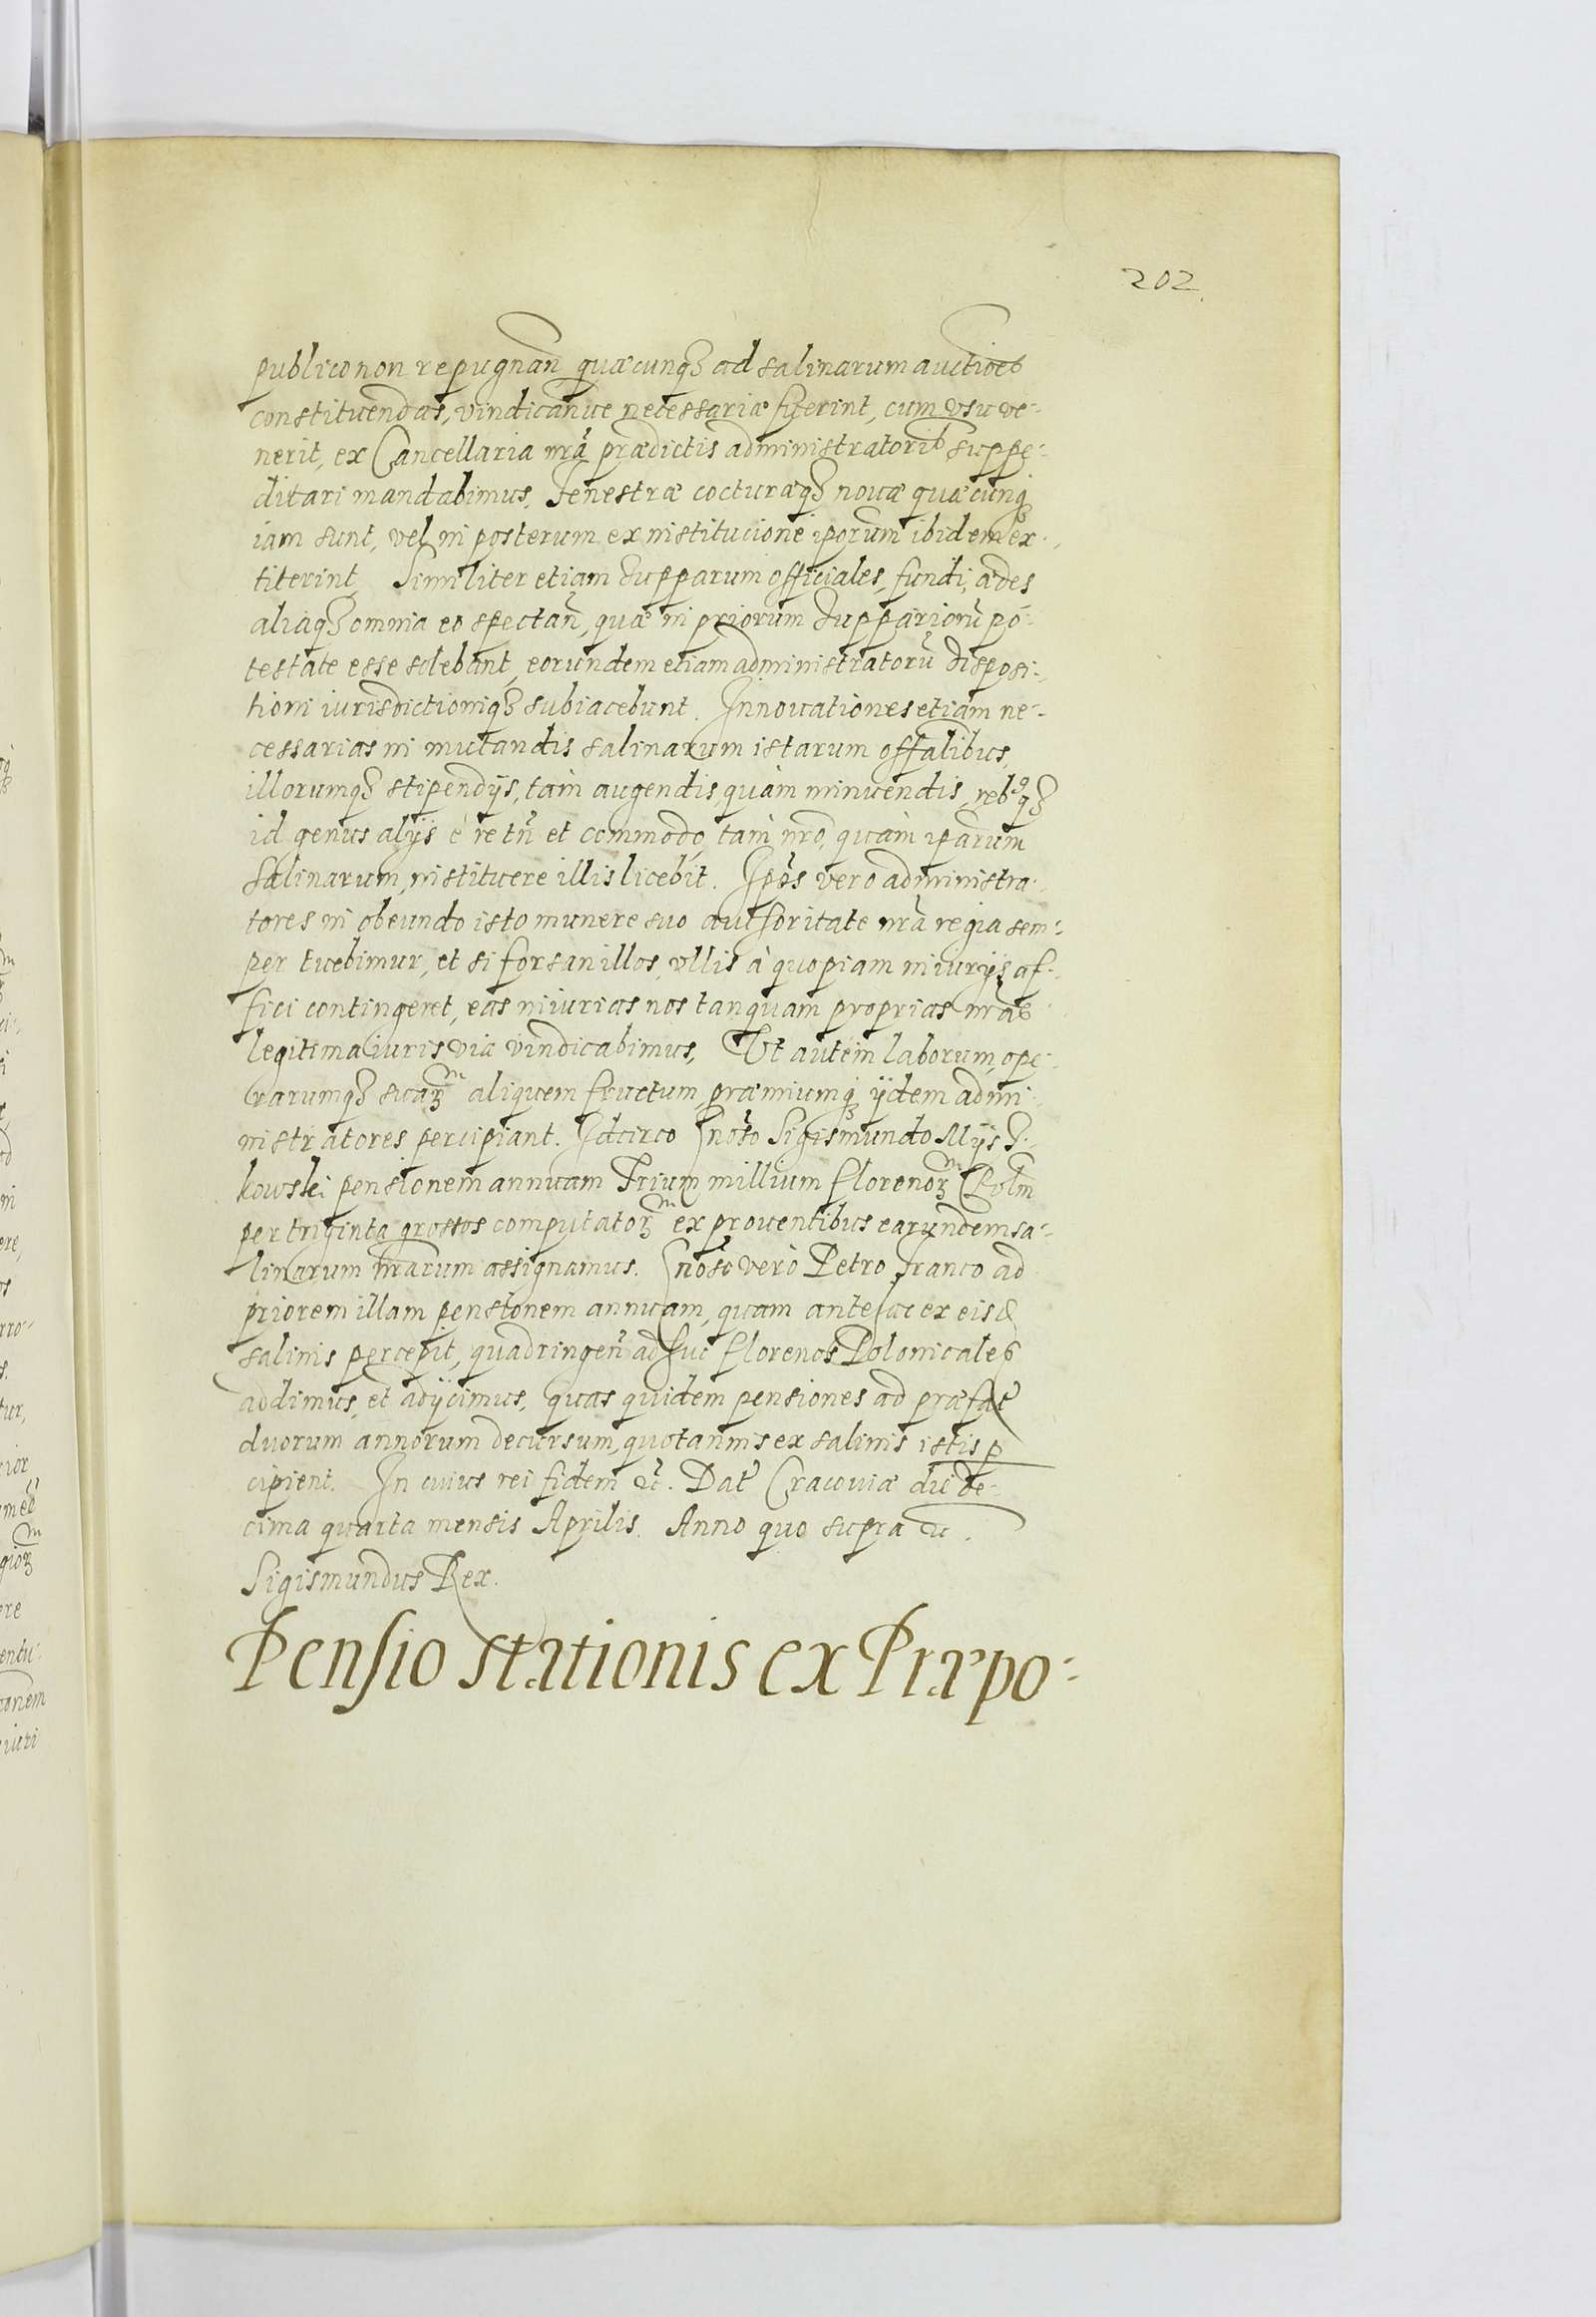 202.
publico non repugnan̄ quæcunqȝ ad salinarum auctioēs
constituendas, vindicanue necessariæ fuerint, cum vsu ve-
nerit, ex Cancellaria nr̄a prædictis administratorib suppe-
ditari mandabimus. Fenestræ cocturæqȝ nouæ quæcunqȝ
iam sunt, vel in posterum ex institucione ipsorum ibidem ex-
titerint, Similiter etiam supparum officiales, fundi, ædes
aliaqȝ omnia eo spectan̄, quæ in priorum suppariorū po-
testate esse solebant, eorundem etiam administratorū disposi-
tioni iurisdictioniqȝ subiacebunt. Innouationes etiam ne-
cessarias in mutandis salinarum istarum offalibus,
illorumqȝ stipendijs, tam augendis, quàm minuendis, rebqȝ
id genus alijs è re tn̄ et commodo, tam nr̄o, quàm iparum
Salinarum, instituere illis licebit. Ipōs vero administra-
tores in obeundo isto munere suo authoritate nr̄a regia sem-
per tuebimur, et si forsan illos, vllis à quopiam iniurijs af-
fici contingeret, eas iniurias nos tanquam proprias nr̄as
legitima iuris via vindicabimus, Vt autem laborum, ope-
rarumqȝ suaȝᵐ aliquem fructum, præmiumqȝ ijdem admi-
nistratores percipiant. Idcirco Gnōso Sigismundo Mijsȝ-
kowski pensionem annuam Trium millium florenoȝᵐ Polīn
per triginta grossos computatoȝᵐ ex prouentibus earundem sa-
linarum nr̄arum assignamus. Gnōso verò Petro Franco ad
priorem illam pensionem annuam, quam antehac ex eisd̄
salinis percepit, quadringen̄ adhuc florenos Polonicales
addimus, et adijcimus, quas quidem pensiones ad præfat̄
duorum annorum decursum, quotannis ex salinis istis p̱
cipient. In cuius rei fidem ꝛc̄. Dat̄ Cracouiæ die de-
cima quarta mensis Aprilis. Anno quo supra ꝛc.
Sigismundus Rex.
Pensio stationis ex Præpo-